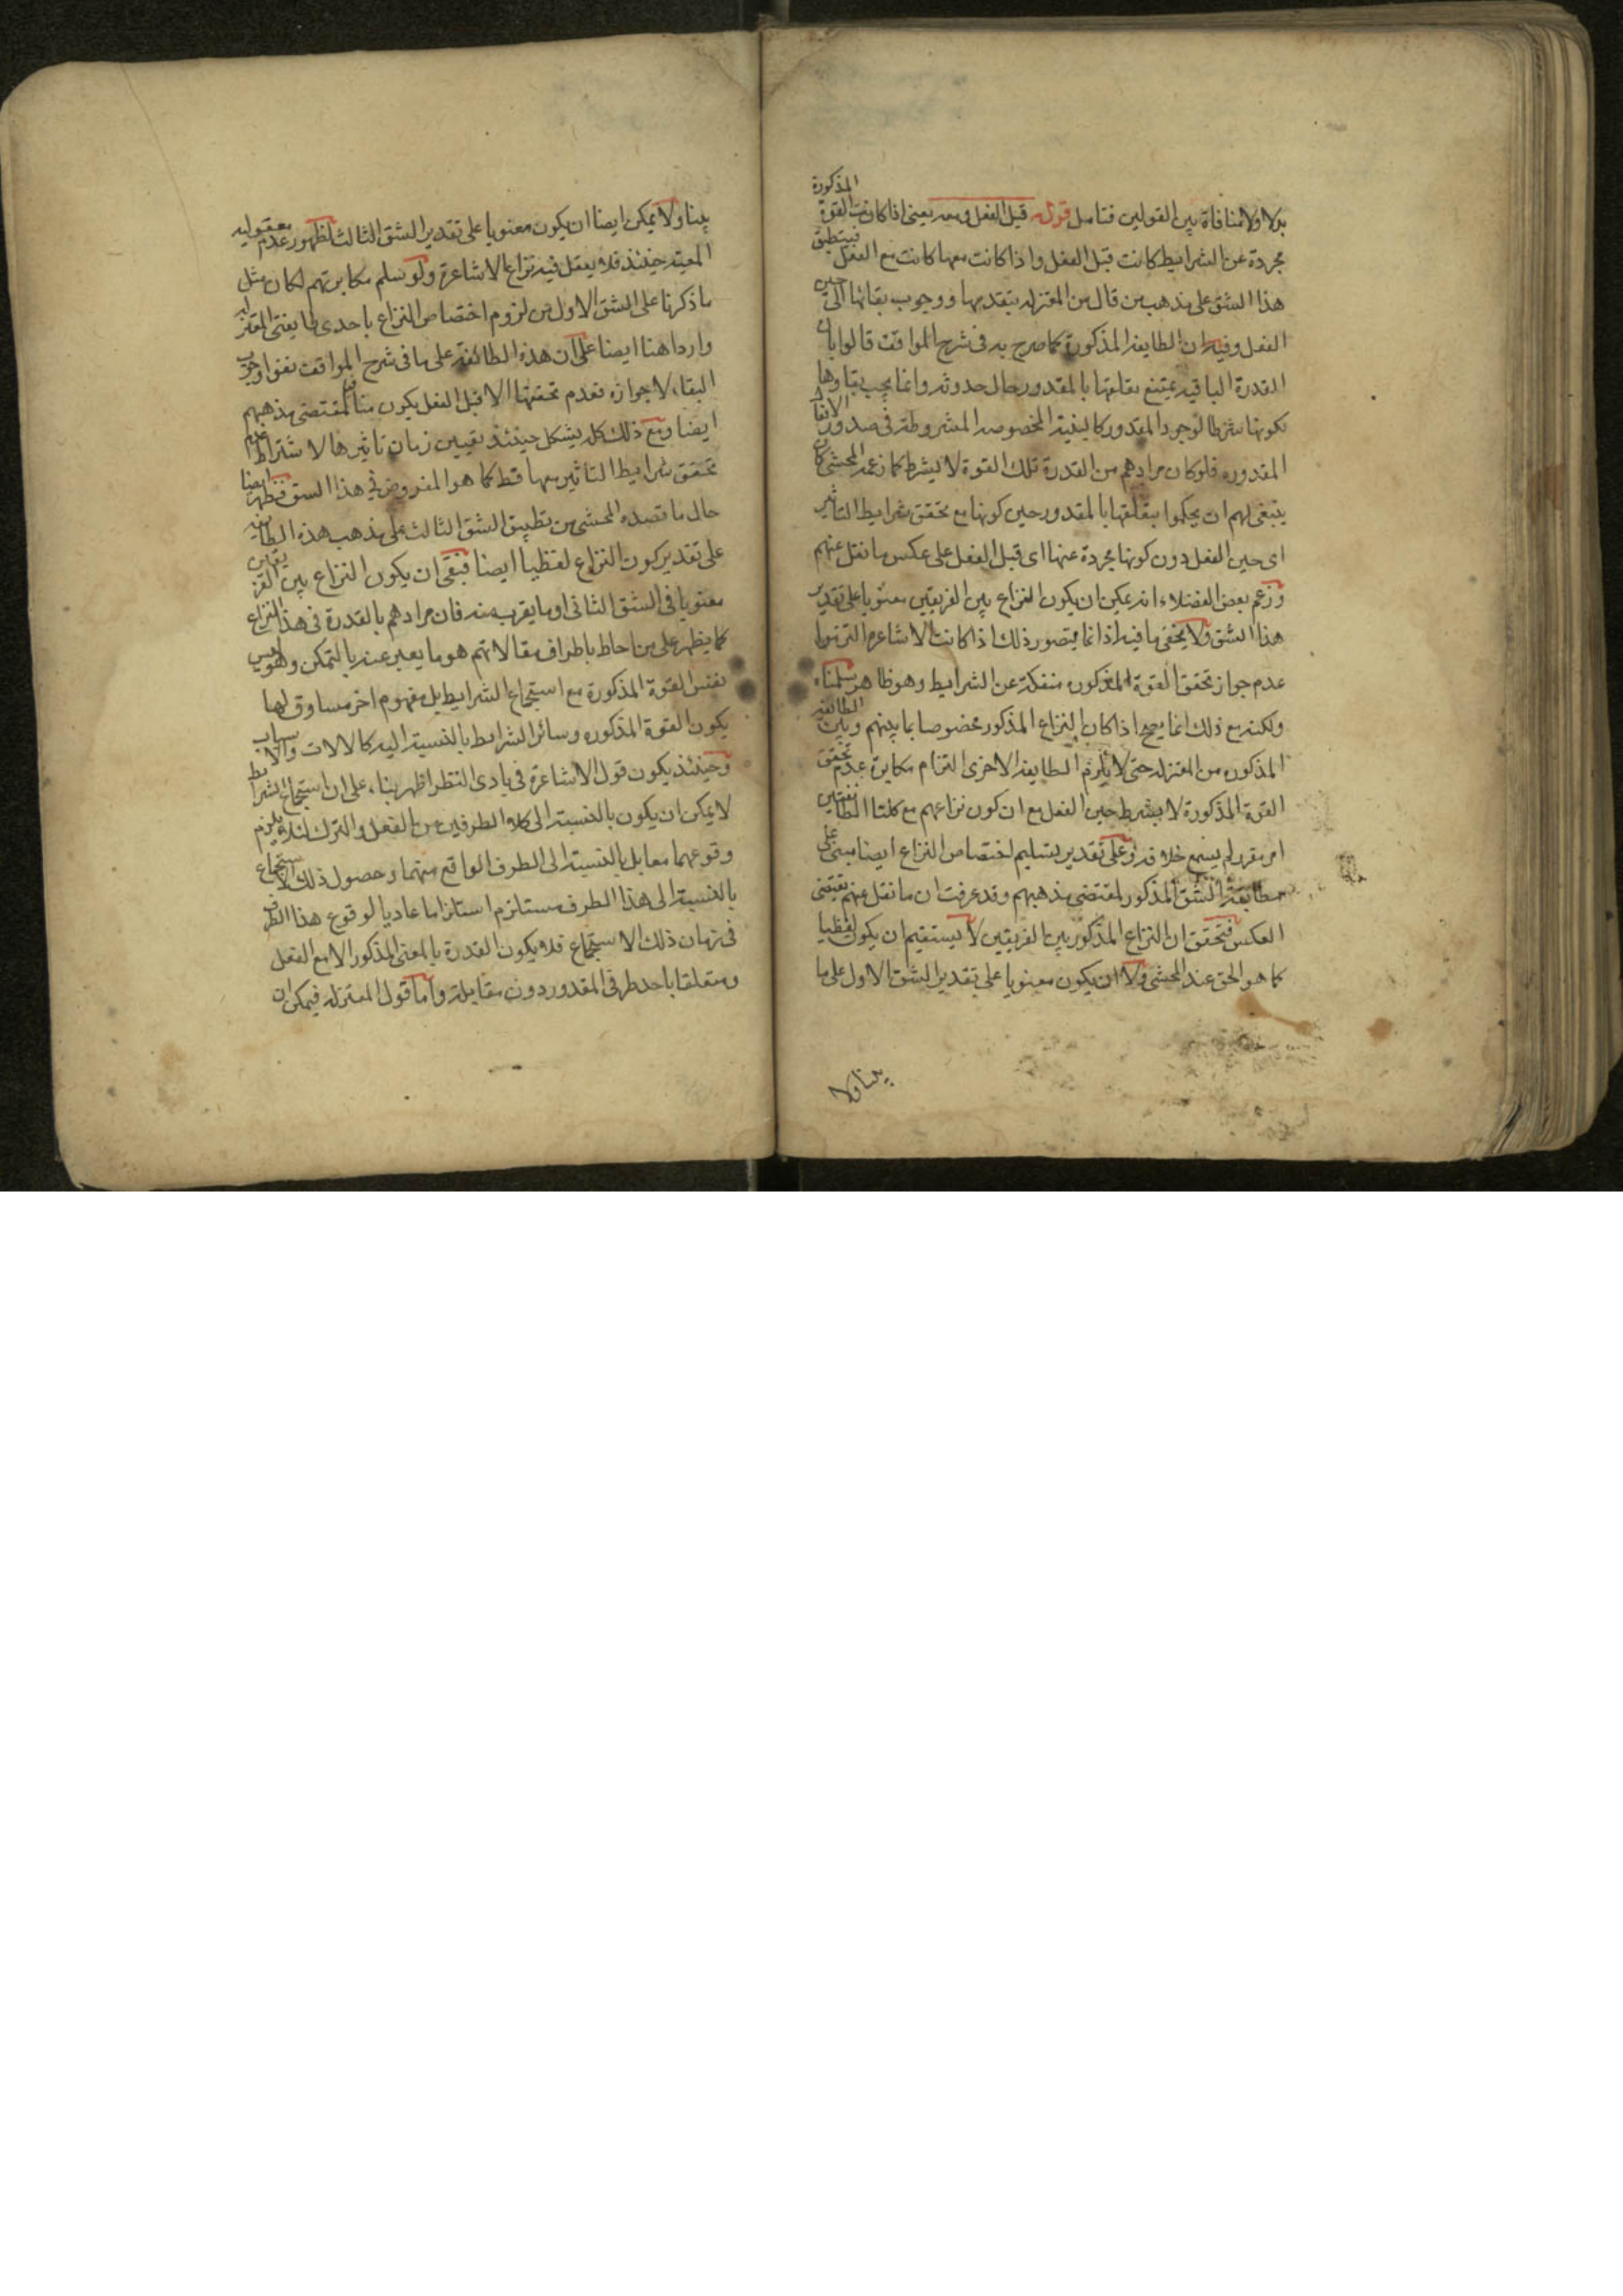 بدلا ولا منافاة بين القولين فتامل قوله قبل الفعل ومعه يعنى اذا كانت القوة المذكورة
مجردة عن الشرايط كانت قبل الفعل واذا كانت معها كانت مع الفعل فينطبق
هذا الشق على مذهب من قال من المعتزله بتقدمها ووجوب بقائها الى حين
الفعل وفيه ان الطايفه المذكورة كما صرح به فى شرح المواقف قالوا بان
القدرة الباقيه يمتنع تعلقها بالمقدور حال حدوثه وانما يجب بقاوها
لكونها شرطا لوجود المقدور كالبنية المخصوصه المشروطة فى صدور الافعال
المقدوره فلو كان مرادهم من القدرة تلك القوة لا بشرط كما زعمه المحشى كان
ينبغى لهم ان يحكموا بتعلقها بالمقدور حين كونها مع تحقق شرايط التاثير
اى حين الفعل دون كونها مجردة عنها اى قبل الفعل على عكس ما نقل عنهم
وزعم بعض الفضلاء انه يمكن ان يكون النزاع بين الفريقين معنويا على تقدير
هذا الشق ولا يخفى ما فيه اذ انما يتصور ذلك اذا كانت الاشاعره التزموا
عدم جواز تحقق القوة المذكوره منفكة عن الشرايط وهو ظاهر سلمناه
ولكنه مع ذلك انما يصح اذا كان النزاع المذكور مخصوصا بما بينهم وبين الطائفه
المذكوره من المعتزله حتى لا يلزم الطايفه الاخرى التزام مكابرة عدم تحقق
القوة المذكورة لا بشرط حين الفعل مع ان كون نزاعهم مع كلتا الطائفتين
امر مقرر لم يسمع خلافه وعلى تقدير تسليم اختصاص النزاع ايضا مبنى على
مطابقة الشق المذكور لمقتضى مذهبهم وقد عرفت ان ما نقل عنهم يقتضى
العكس فتحقق ان النزاع المذكور بين الفريقين لا يستقيم ان يكون لفظيا
كما هو الحق عند المحشى ولا ان يكون معنويا على تقدير الشق الاول على ما
بينا ولا
بينا ولا يمكن ايضا ان يكون معنويا على تقدير الشق الثالث لظهور عدم معقوليه
المعيته حينئذ فلا يعقل فيه نزاع الاشاعرة ولو سلم مكابرتهم لكان مثل
ما ذكرنا على الشق الاول من لزوم اختصاص النزاع باحدى طايفتى المعتزله
واردا هنا ايضا على ان هذه الطائفة على ما فى شرح المواقف نفوا وجوب
البقاء لا جوازه فعدم تحققها الا قبل الفعل يكون منافيا لمقتضى مذهبهم
ايضا ومع ذلك كله يشكل حينئذ تعيين زمان تاثيرها لاشتراط عدم
تحقق شرايط التاثير معها قط كما هو المفروض فى هذا الشق فظهر ايضا
حال ما قصده المحشى من تطبيق الشق الثالث على مذهب هذه الطائفه
على تقدير كون النزاع لفظيا ايضا فبقى ان يكون النزاع بين الفريقين
معنويا فى الشق الثانى او ما يقرب منه فان مرادهم بالقدرة فى هذا النزاع
كما يظهر على من احاط باطراف مقالاتهم هو ما يعبر عنه بالتمكن وهو ليس
نفس القوة المذكورة مع استجماع الشرايط بل مفهوم اخر مساوق لها
يكون القوة المذكوره وسائر الشرايط بالنسبة اليه كالالات والاسباب
وحينئذ يكون قول الاشاعرة فى بادى النظر اظهر بناء على ان استجماع الشرايط
لا يمكن ان يكون بالنسبة الى كلا الطرفين من الفعل والترك لئلا يلزم
وقوعهما معا بل بالنسبة الى الطرف الواقع منهما وحصول ذلك الاستجماع
بالنسبة الى هذا الطرف مستلزم استلزاما عاديا لوقوع هذا الطرف
فى زمان ذلك الاستجماع فلا يكون القدرة بالمعنى المذكور الا مع الفعل
ومتعلقا باحد طرفى المقدور دون مقابله واما قول المعتزله فيمكن ان